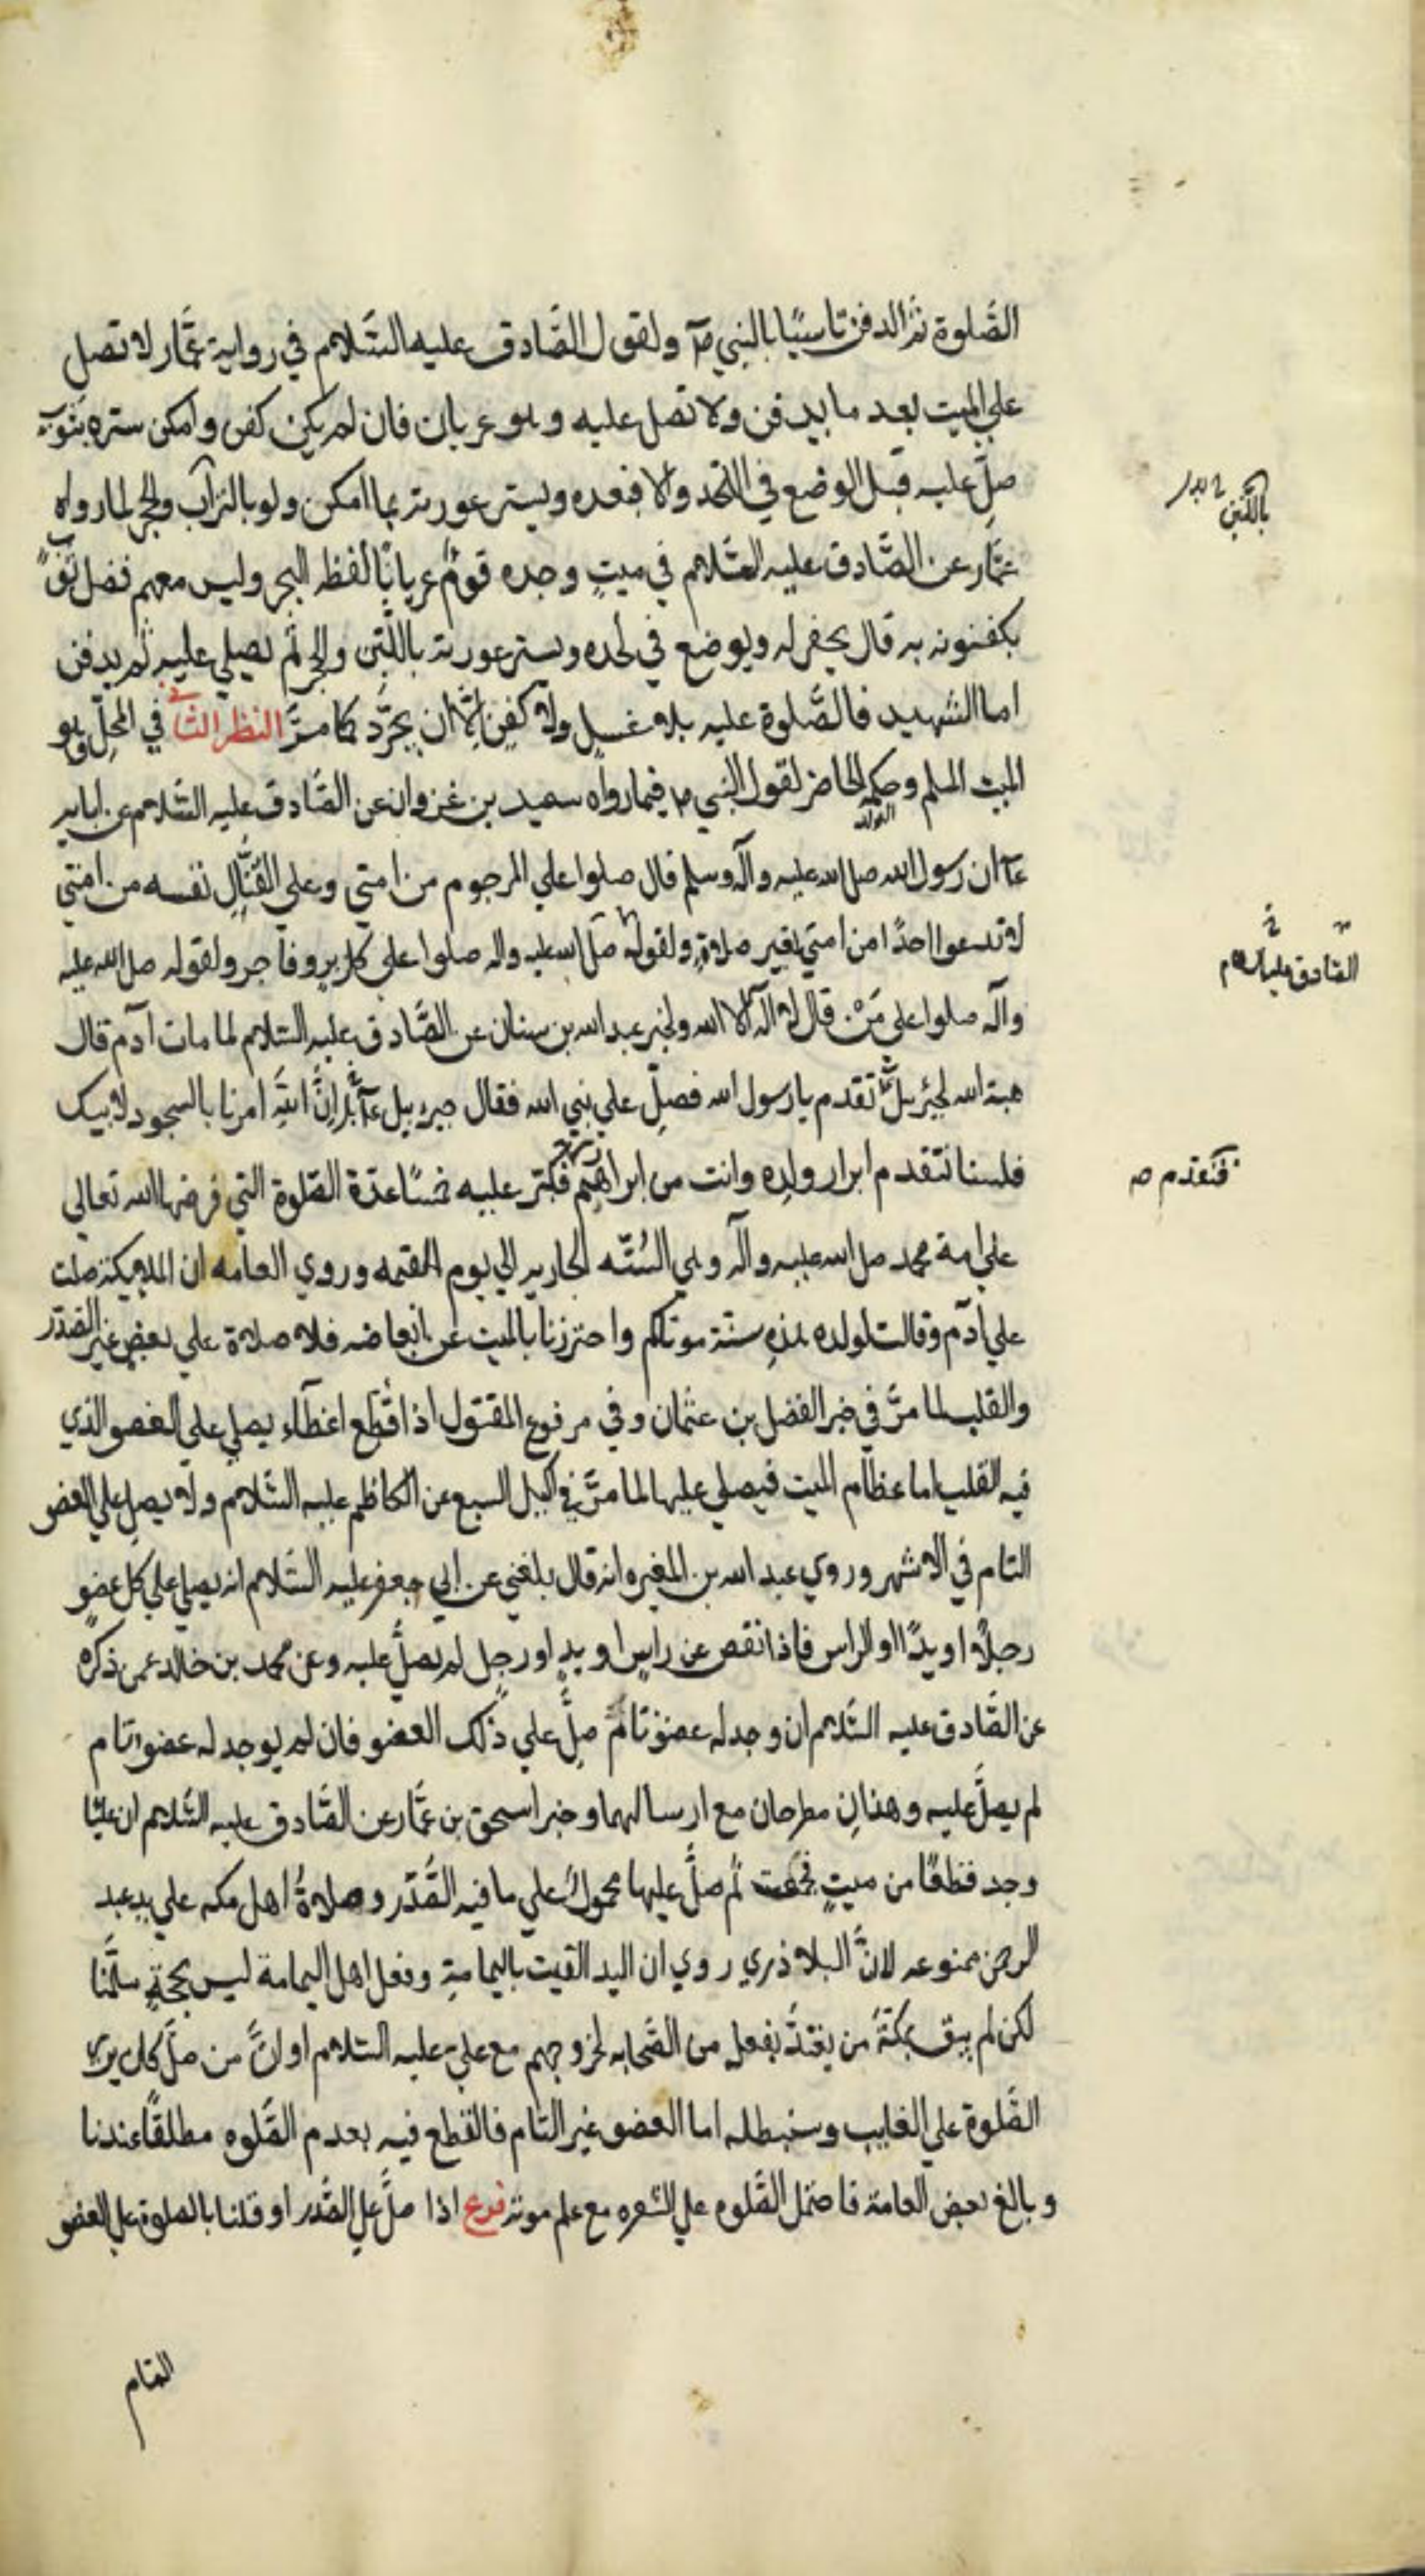 الصَّلوة ثم الدفن تاسيًا بالنبي صم ولقول الصَّادق عليه السَّلام في رواية عمَّار لا تصل
علي الميت بعد ما يدفن ولا تصل عليه وهو عريان فان لم يكن كفن وامكن ستره بثوب
صلِّ عليه قبل الوضع في اللحد والا فبعده ويستر عورته بما امكن ولو بالتراب والحجر لما رواه
عمَّار عن الصَّادق عليه السَّلام في ميتٍ وجده قومٌ عريانًا لفظه البحر وليس معهم فضل ثوب
يكفنونه به قال يحفر له ويوضع في لحده ويستر عورته باللَّبن والحجر ثم يصلي عليه ثم يدفن
اما الشهيد فالصَّلوة عليه بلا غسل ولا كفن الَّا ان يجرَّد كما مرَّ النظر الثاني في المحلّ وهو
الميت المسلم وحكمه الحاضر لقول النبي ص فيما رواه سعيد بن غزوان عن الصَّادق عليه السَّلام عن ابايه
عم ان رسول الله صل الله عليه وآله وسلم قال صلوا علي المرجوم من امتي وعلي القتَّال نفسه من امتي
لا تدعوا احدًا من امتي بغير صلاةٍ ولقوله صل الله عليه واله صلوا علي كل بر وفاجر ولقوله صل الله عليه
وآله صلوا علي مَنْ قال لا آله الا الله ولخبر عبد الله بن سنان عن الصَّادق عليه السَّلام لما مات آدم قال
هبة الله لجبرئيل تقدم يا رسول الله فصلِّ علي نبي الله فقال جبرييل عم انَّ الله امرنا بالسجود لابيك
فلسنا نتقدم ابرار ولده وانت من ابرهم فكبّر عليه خمسًا عدَّة الصَّلوة التي فرضها الله تعالي
علي امة محمد صل الله عليه وآله وهي السُنَّه الجاريه الي يوم القيمه وروي العامه ان الملايكة صلت
علي آدم وقالت لولده هذه سنَّة موتاكم واحترزنا بالميت عن ابعاضه فلا صلاة علي بعضٍ غير الصَّدر
والقلب لما مرَّ في خبر الفضل بن عثمان وفي مرفوع المقتول اذا قُطِّع اعضآء يصلي علي العضو الذي
فيه القلب اما عظام الميت فيصلي عليها لما مرَّ في اكيل السبع عن الكاظم عليه السَّلام ولا يصلي علي العضو
التام في الاشهر وروي عبد الله بن المغيره انه قال بلغني عن ابي جعفر عليه السَّلام انه يصلي علي كل عضوٍ
رجلًا او يدًا او الراس فاذا نقص عن راسٍ او يدٍ او رجلٍ لم يصلَّ عليه وعن محمد بن خالد عمن ذكره
عن الصَّادق عليه السَّلام ان وجد له عضوٌ تامٌ صلِّ علي ذلك العضو فان لم يوجد له عضو تام
لم يصلَّ عليه وهذان مطرحان مع ارسالهما وخبر اسحق بن عمَّار عن الصَّادق عليه السَّلام ان عليًّا
وجد قطعًا من ميتٍ فجمعت ثم صلَّ عليها محمولٌ علي ما فيه الصَّدر وصلاةُ اهل مكه علي يد عبد
الرحمن ممنوعه لانَّ البلاذري روي ان اليد القيت باليمامةِ وفعل اهل اليمامة ليس بحجةٍ سلَّمنا
لكن لم يبق بمكَّةَ من يعتدُّ بفعله من الصَّحابه لخروجهم مع علي عليه السَّلام او لانَّ من صلَّ كان يري
الصَّلوة علي الغايب وسنبطله اما العضو غير التام فالقطع فيه بعدم الصَّلوه مطلقًا عندنا
وبالغ بعض العامة فاحتمل الصَّلوه علي الشعره مع علم موته فرع اذا صلَّ علي الصَّدر او قلنا بالصلوة علي العضو
التام
باللَّبن
الصَّادق عليه السلام
فنتقدم ص